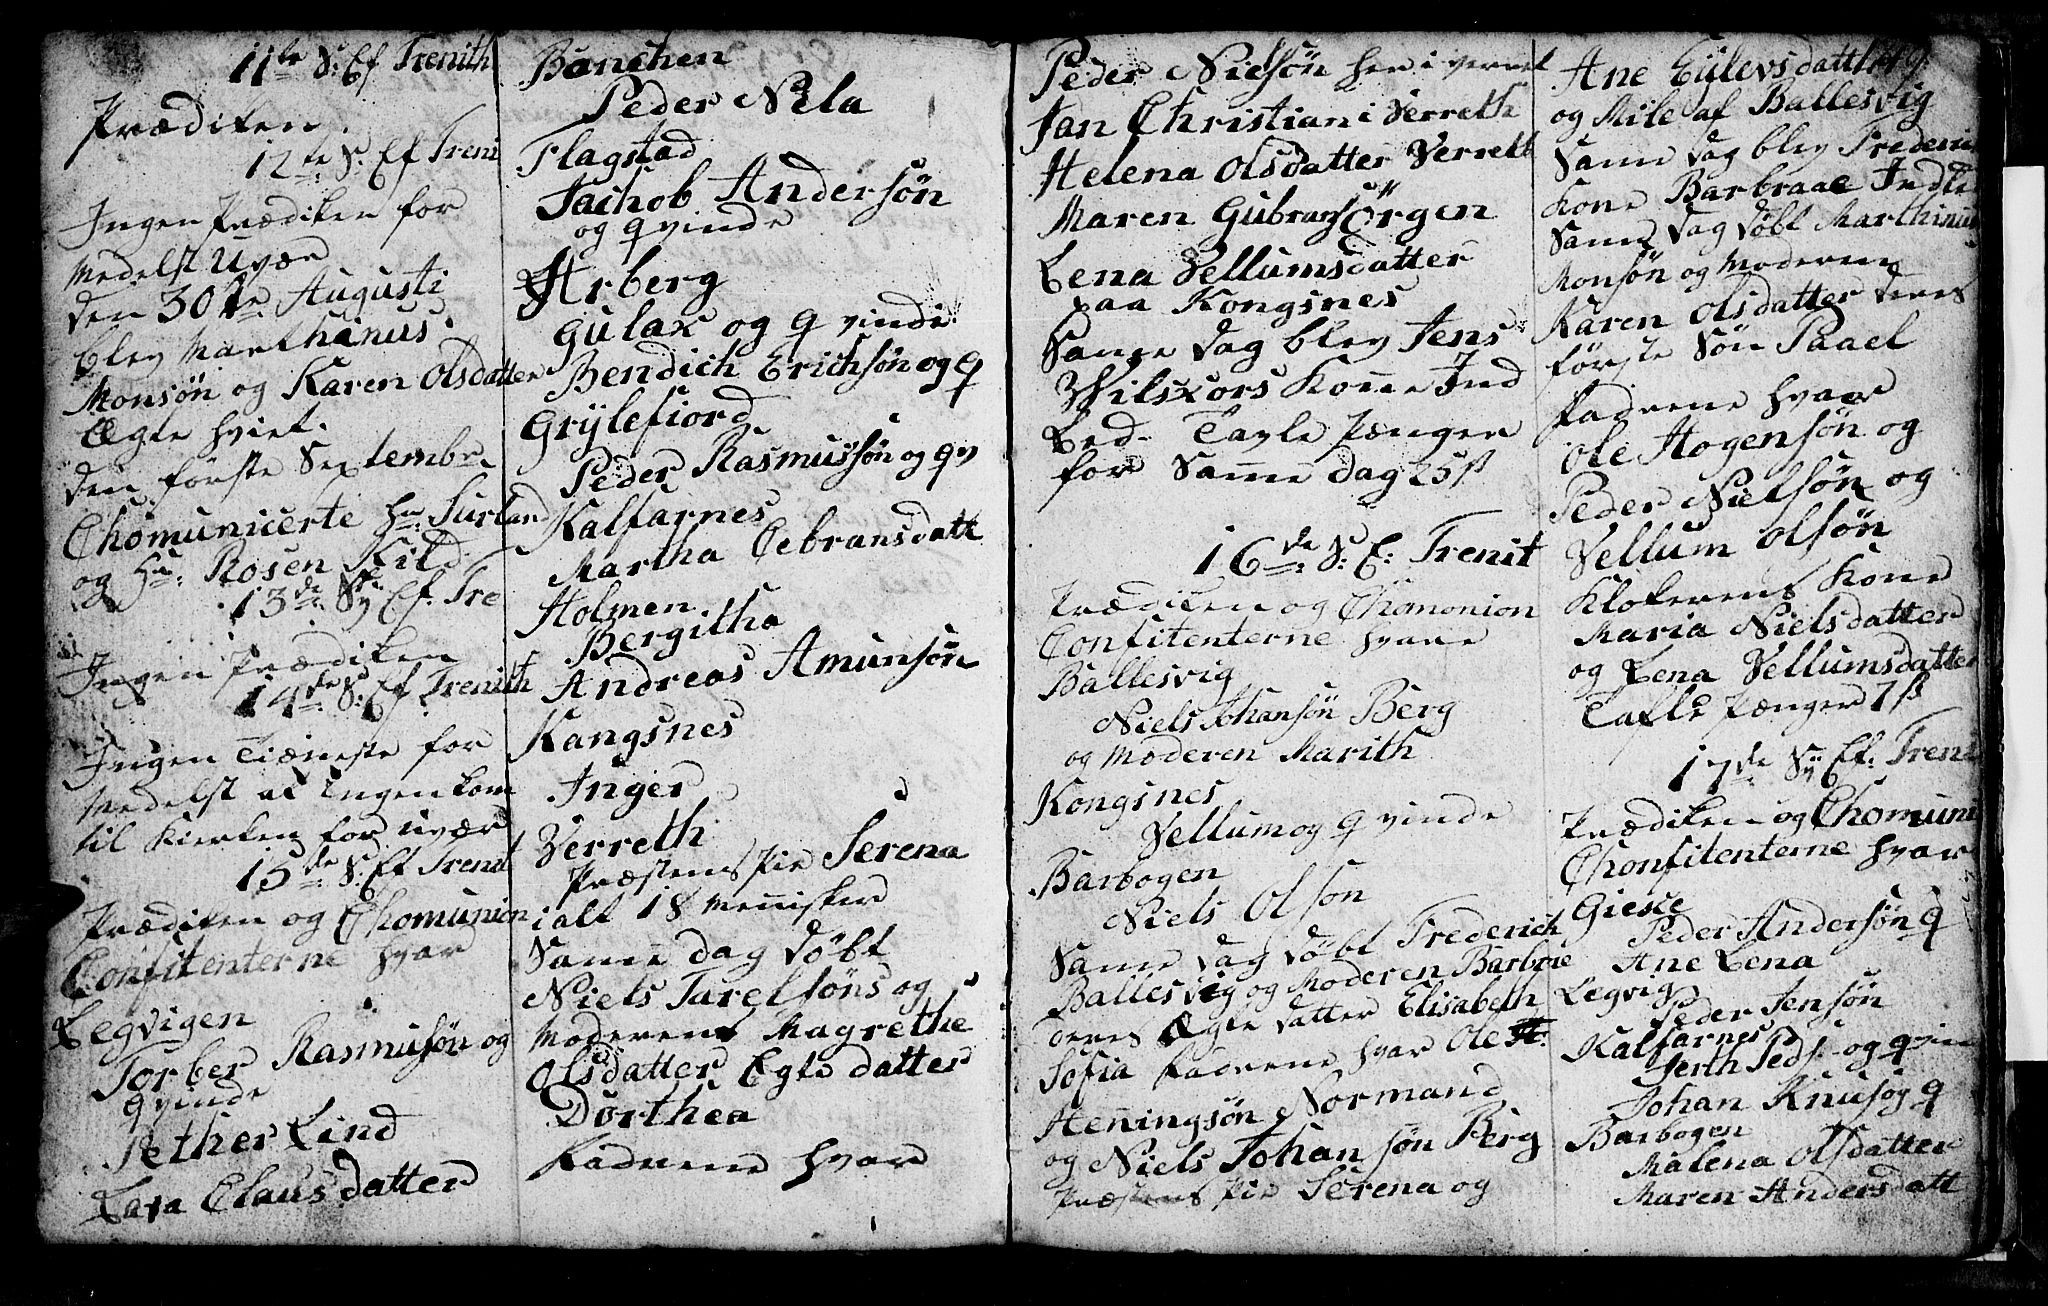 11te S: Ef Trenith
Prædiken
12te S: Ef Treni
Ingen Prædiken for
Medelst Uvær
den 30te Augusti
blev Marthinus
Monsøn og Karen Olsdatter
Ægte hviet.
den første Septembr
Chomunicerte Hr Surland
og Hr: Rosen Kild
13de Sy Ef. Tre
Ingen Prædiken
14de S: Ef Trenith
Ingen Tiæneste for
Medelst at Ingen kom
til Kierken for uvær
15de S: Ef Trenit
Prædiken og Chomunion
Confitenterne hvar
Legvigen
Torber Rasmusøn og
qvinde
Pether Lind
Lava Clausdatter
Banchen
Peder Nila
Flagstad
Jachob Andersøn
og qvinde
Arberg
Gulax og qvinde
Bendich Erichsøn og q
Grÿlefiord
Peder Rasmusøn og qv
Kalfarnes
Martha Cebransdatt
Holmen
Bergitha
Andreas Amunsøn
Kangsnes
Inger
Verreth
Præstens Pie Serena
i alt 18 Menisker
Same dag døbt
Niels Tarelsøns og
Moderens Magrethe
Olsdatter Egte datter
Dorthea
Fadrene hvar
Peder Nielsøn her i verret
Jan Christian i Verreth
Helena Olsdatter Verreth
Maren Gubransørgen
Lena Vellumsdatter
paa Kongsnes
Same dag blev Jens
Wilskors Kone Ind
Led. Tavle Pænger
for Same dag 25 ß
16de S: E: Trenit
Prædiken og Chomonion
Confitenterne hvare
Ballesvig
Niels Johansøn Berg
og Moderen Marith
Kongsnes
Vellum og qvinde
Barbogen
Niels Olson
Same dag døbt Frederich
Ballesvig og Moderen Barbroe
deres Ægte datter Elisabeth
Sofia Fadrene hvar Ole
Heningsøn Normand
og Niels Johansøn Berg
Præstens Pie Serena og
Ane Eÿlevsdatt 119
og Mile af Ballesvig
Same dag blev Frederi
Kone Barbraae Indle
Same dag døbt Marthinus
Monsøn og Moderen
Karen Olsdatter deres
første Søn Paael
Fadrene hvar
Ole Hogensøn og
Peder Nielsøn og
Vellum Olsøn
Klokerens Kone
Maria Nielsdatter
og Lena Vellumsdatter
Tafle Pænger 7 ß
17de Sy Ef: Treni
Prædiken og Chomuni
Chonfitenterne hvar
Giesce
Peder Andersøn q
Ane Lena
Legvig
Peder Jensøn
Kalfarnes
Jerth Peds: og qvin
Johan Knus og q
Barbogen
Malena Olsdatter
Maren Andersdatt